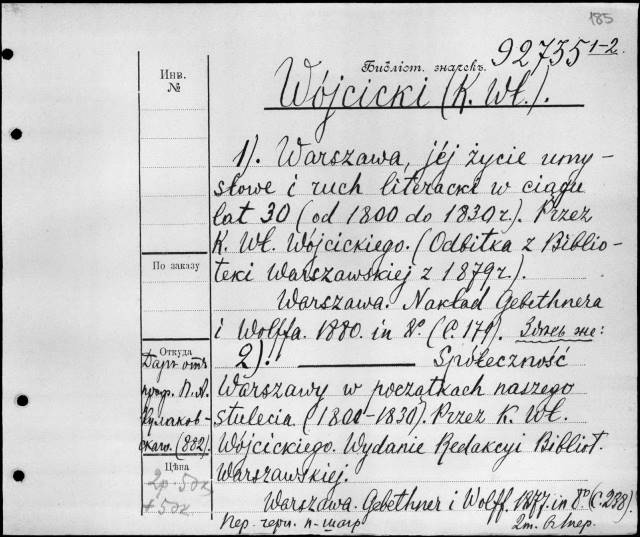 185
92735 1-2.
Библіот. значекъ.
Инв.
№
Wójcicki (K. Wł.).
1). Warszawa, jéj życie umy-
słowe i ruch literacki w ciągu
lat 30 (od 1800 do 1830 r.). Przez
K. Wł. Wójcickiego. (Odbitka z Biblio-
teki Warszawskiej z 1879 r.).
По заказу
Warszawa. Nakład Gebethnera
i Wolffa. 1880. in 8º. (C. 179). Здѣсь же:
Откуда
2). Społeczność
Даръ отъ
проф. П. А.
Кулаков-
скаго. (882).
Warszawy w początkach naszego
stulecia (1800-1830). Przez K. Wł.
Wójcickiego. Wydanie Redakcyi Bibliot.
Warszawskiej.
Цѣна
2р. 50к
+50к
Warszawa. Gebethner i Wolff. 1877. in 8º (C. 238).
Пер. черн. п-шагр
2т. въ 1 пер.